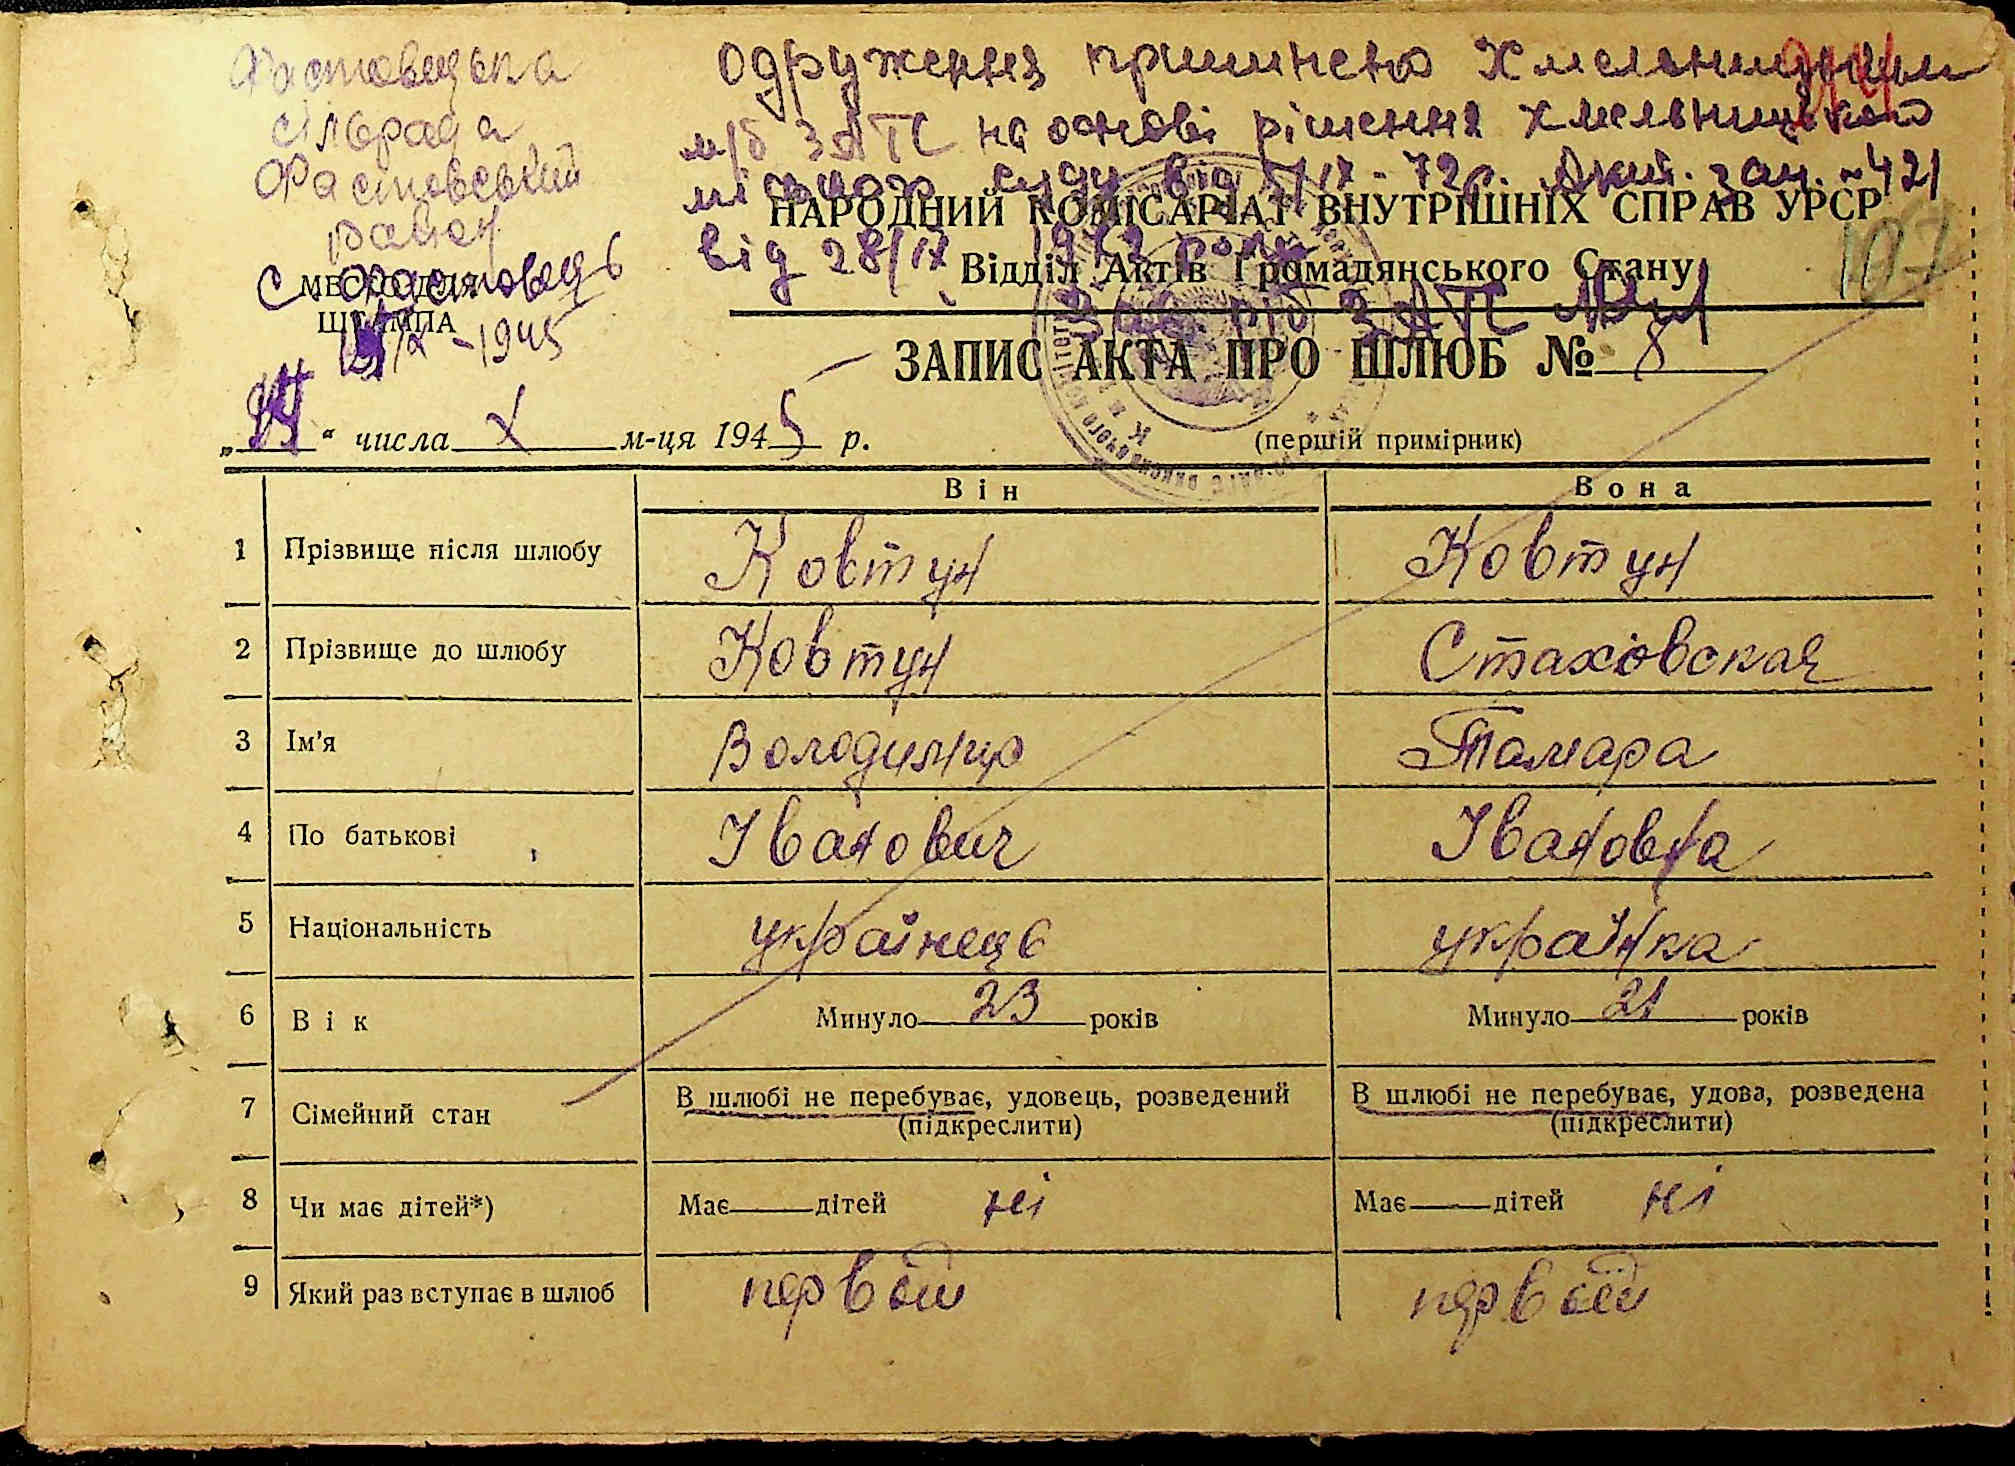 Фастовецька
сільрада
Фастовський
район
с. Фастовець
МІСЦЕ ДЛЯ
ШТАМПА
/X - 1945
Одруження припинено Хмельницьким
м/б ЗАГС на основі рішення Хмельницького
суду від IX-72р. Акт. зап. №421
НАРОДНИЙ КОМІСАРІАТ ВНУТРІШНІХ СПРАВ УРСР
від 28/IX 1972 року
107
Відділ Актів Громадянського Стану
ЗАГС
ЗАПИС АКТА ПРО ШЛЮБ № 8
„ “ числа X м-ця 1945 р.
(першій примірник)
Він Вона
1 Прізвище після шлюбу Ковтун Ковтун
2 Прізвище до шлюбу Ковтун Стаховская
3 Ім'я Володимир Тамара
4 По батькові Іванович Івановна
5 Національність українець українка
6 Вік Минуло 23 років Минуло 21 років
7 Сімейний стан В шлюбі не перебуває, удовець, розведений В шлюбі не перебуває, удова, розведена
(підкреслити) (підкреслити)
8 Чи має дітей*) Має дітей ні Має дітей ні
9 Який раз вступає в шлюб